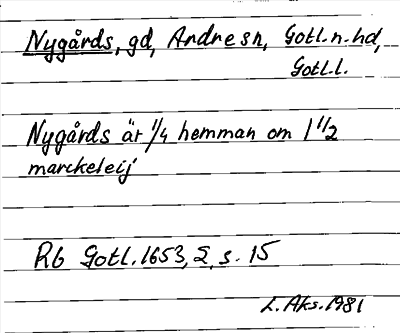 Nygårds, gd, Andre sn, Gotl.n.hd,
Gotl.l.
Nygårds är 1/4 hemman om 1 1/2
marckeleij
Rb Gotl.1653,2, s. 15
L. Aks.1981